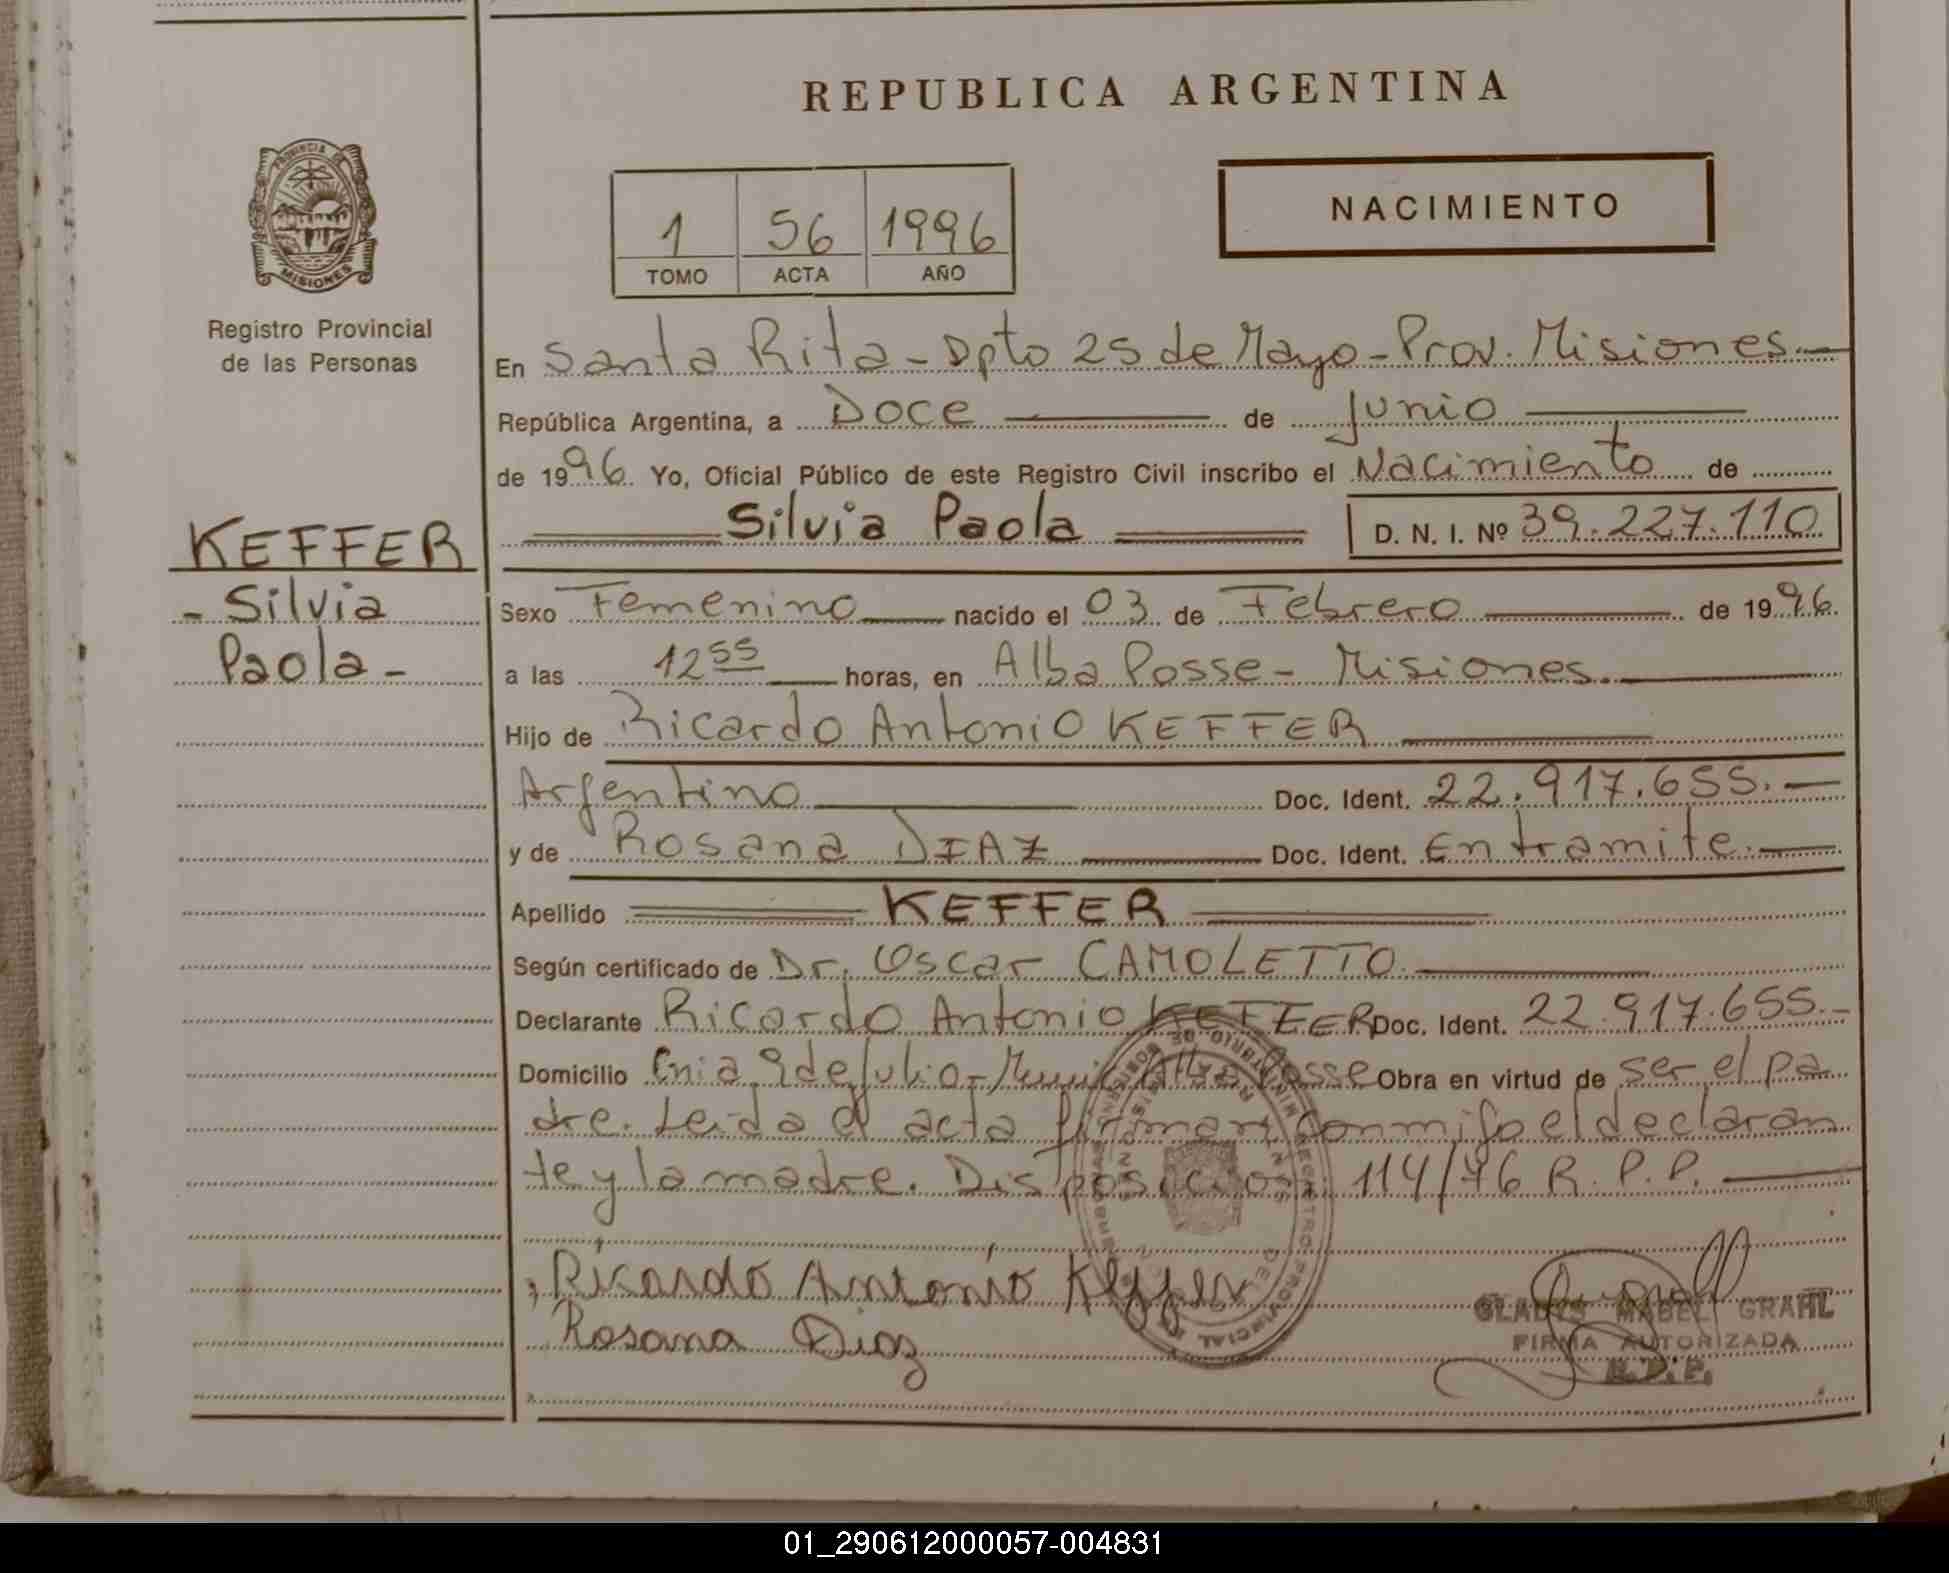 REPUBLICA ARGENTINA
PROVINCIA DE
MISIONES
Registro Provincial
de las Personas
1 56 1996
TOMO ACTA AÑO
NACIMIENTO
En Santa Rita - Dpto 25 de Mayo - Prov. Misiones.-
República Argentina, a Doce de Junio
de 1996. Yo, Oficial Público de este Registro Civil inscribo el Nacimiento de
Silvia Paola D. N. I. Nº 39.227.110
KEFFER
- Silvia
Paola -
Sexo Femenino nacido el 03 de Febrero de 1996.
a las 12 55 horas, en Alba Posse - Misiones.
Hijo de Ricardo Antonio KEFFER
Argentino Doc. Ident. 22.917.655.-
y de Rosana DIAZ Doc. Ident. En tramite.-
Apellido KEFFER
Según certificado de Dr. Oscar CAMOLETTO
Declarante Ricardo Antonio KEFFER Doc. Ident. 22.917.655.-
Domicilio Cnia 9 de Julio - Munic. Alba Posse Obra en virtud de ser el pa
dre. Leida el acta firman conmigo el declaran
te y la madre. Disposicion 114/76 R. P. P.
Ricardo Antonio Keffer
Rosana Diaz
GLADYS MABEL GRAHL
FIRMA AUTORIZADA
R.P.P.
01_290612000057-004831